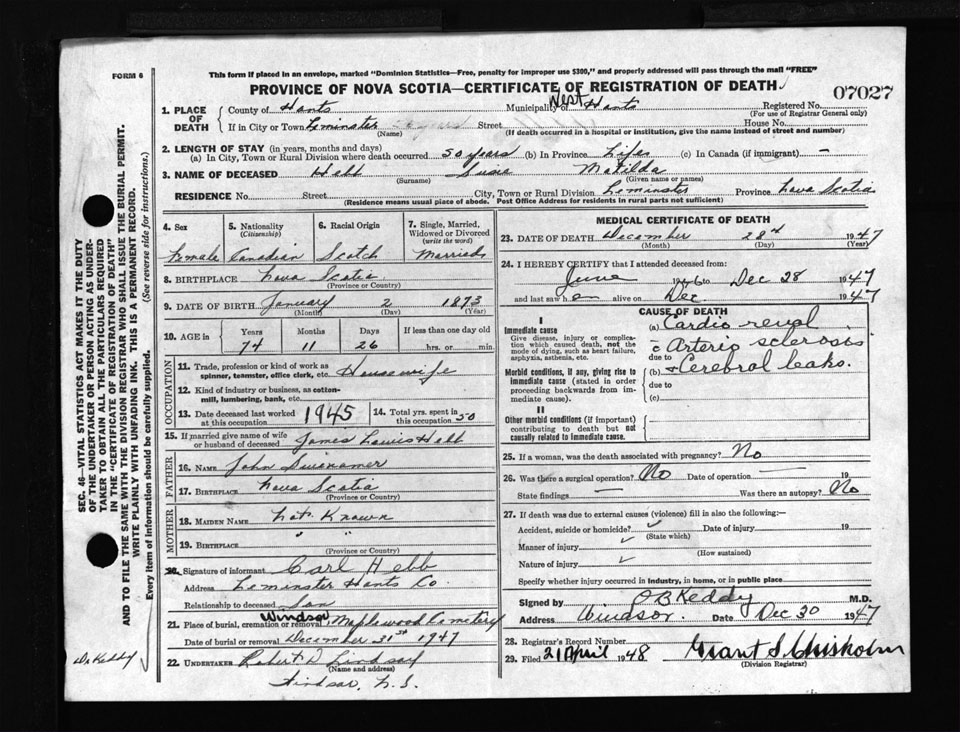 FORM 6
This form if placed in an envelope, marked "Dominion Statistics—Free, penalty for improper use $300," and properly addressed will pass through the mail "FREE"
PROVINCE OF NOVA SCOTIA—CERTIFICATE OF REGISTRATION OF DEATH
07027
1. PLACE OF DEATH
County of Hants Municipality of West Hants Registered No.
(For use of Registrar General only)
If in City or Town Leminster Street House No.
(Name) (If death occurred in a hospital or institution, give the name instead of street and number)
2. LENGTH OF STAY (in years, months and days)
(a) In City, Town or Rural Division where death occurred 50 years (b) In Province Life (c) In Canada (if immigrant) —
3. NAME OF DECEASED Hebb Susie Matilda
(Surname) (Given name or names)
RESIDENCE No. Street City, Town or Rural Division Leminster Province Nova Scotia
(Residence means usual place of abode. Post Office Address for residents in rural parts not sufficient)
4. Sex 5. Nationality (Citizenship) 6. Racial Origin 7. Single, Married, Widowed or Divorced (write the word)
Female Canadian Scotch Married
8. BIRTHPLACE Nova Scotia
(Province or Country)
9. DATE OF BIRTH January 2 1873
(Month) (Day) (Year)
10. AGE in Years Months Days If less than one day old
74 11 26 hrs. or min.
OCCUPATION
11. Trade, profession or kind of work as spinner, teamster, office clerk, etc. Housewife
12. Kind of industry or business, as cotton-mill, lumbering, bank, etc.
13. Date deceased last worked at this occupation 1945 14. Total yrs. spent in this occupation 50
15. If married give name of wife or husband of deceased James Lewis Hebb
FATHER
16. NAME John
17. BIRTHPLACE Nova Scotia
(Province or Country)
MOTHER
18. MAIDEN NAME Not Known
19. BIRTHPLACE " "
(Province or Country)
20. Signature of informant Carl Hebb
Address Leminster Hants Co.
Relationship to deceased Son
21. Place of burial, cremation or removal Windsor Maplewood Cemetery
Date of burial or removal December 31st 1947
22. UNDERTAKER Robert D Lindsay
(Name and address)
Windsor, N.S.
MEDICAL CERTIFICATE OF DEATH
23. DATE OF DEATH December 28th 1947
(Month) (Day) (Year)
24. I HEREBY CERTIFY that I attended deceased from:
June 1946 to Dec 28 1947
and last saw her alive on Dec 1947
CAUSE OF DEATH
I
Immediate cause
Give disease, injury or complication which caused death, not the mode of dying, such as heart failure, asphyxia, asthenia, etc.
(a) Cardio renal
c Arterio sclerosis
due to
Morbid conditions, if any, giving rise to immediate cause (stated in order proceeding backwards from immediate cause).
(b) + Cerebral leaks.
due to
(c)
II
Other morbid conditions (if important) contributing to death but not causally related to immediate cause.
25. If a woman, was the death associated with pregnancy? No
26. Was there a surgical operation? No Date of operation — 19
State findings — Was there an autopsy? No
27. If death was due to external causes (violence) fill in also the following:
Accident, suicide or homicide? Date of injury 19
(State which)
Manner of injury
(How sustained)
Nature of injury
Specify whether injury occurred in industry, in home, or in public place
Signed by O B Keddy M.D.
Address Windsor. Date Dec 30 1947
28. Registrar's Record Number
29. Filed 21 April 1948 Grant S. Chisholm
(Division Registrar)
SEC. 46—VITAL STATISTICS ACT MAKES IT THE DUTY
OF THE UNDERTAKER OR PERSON ACTING AS UNDER-
TAKER TO OBTAIN ALL THE PARTICULARS REQUIRED
IN THE "CERTIFICATE OF REGISTRATION OF DEATH"
AND TO FILE THE SAME WITH THE DIVISION REGISTRAR WHO SHALL ISSUE THE BURIAL PERMIT.
WRITE PLAINLY WITH UNFADING INK. THIS IS A PERMANENT RECORD.
Every item of information should be carefully supplied. (See reverse side for instructions.)
Dr Keddy